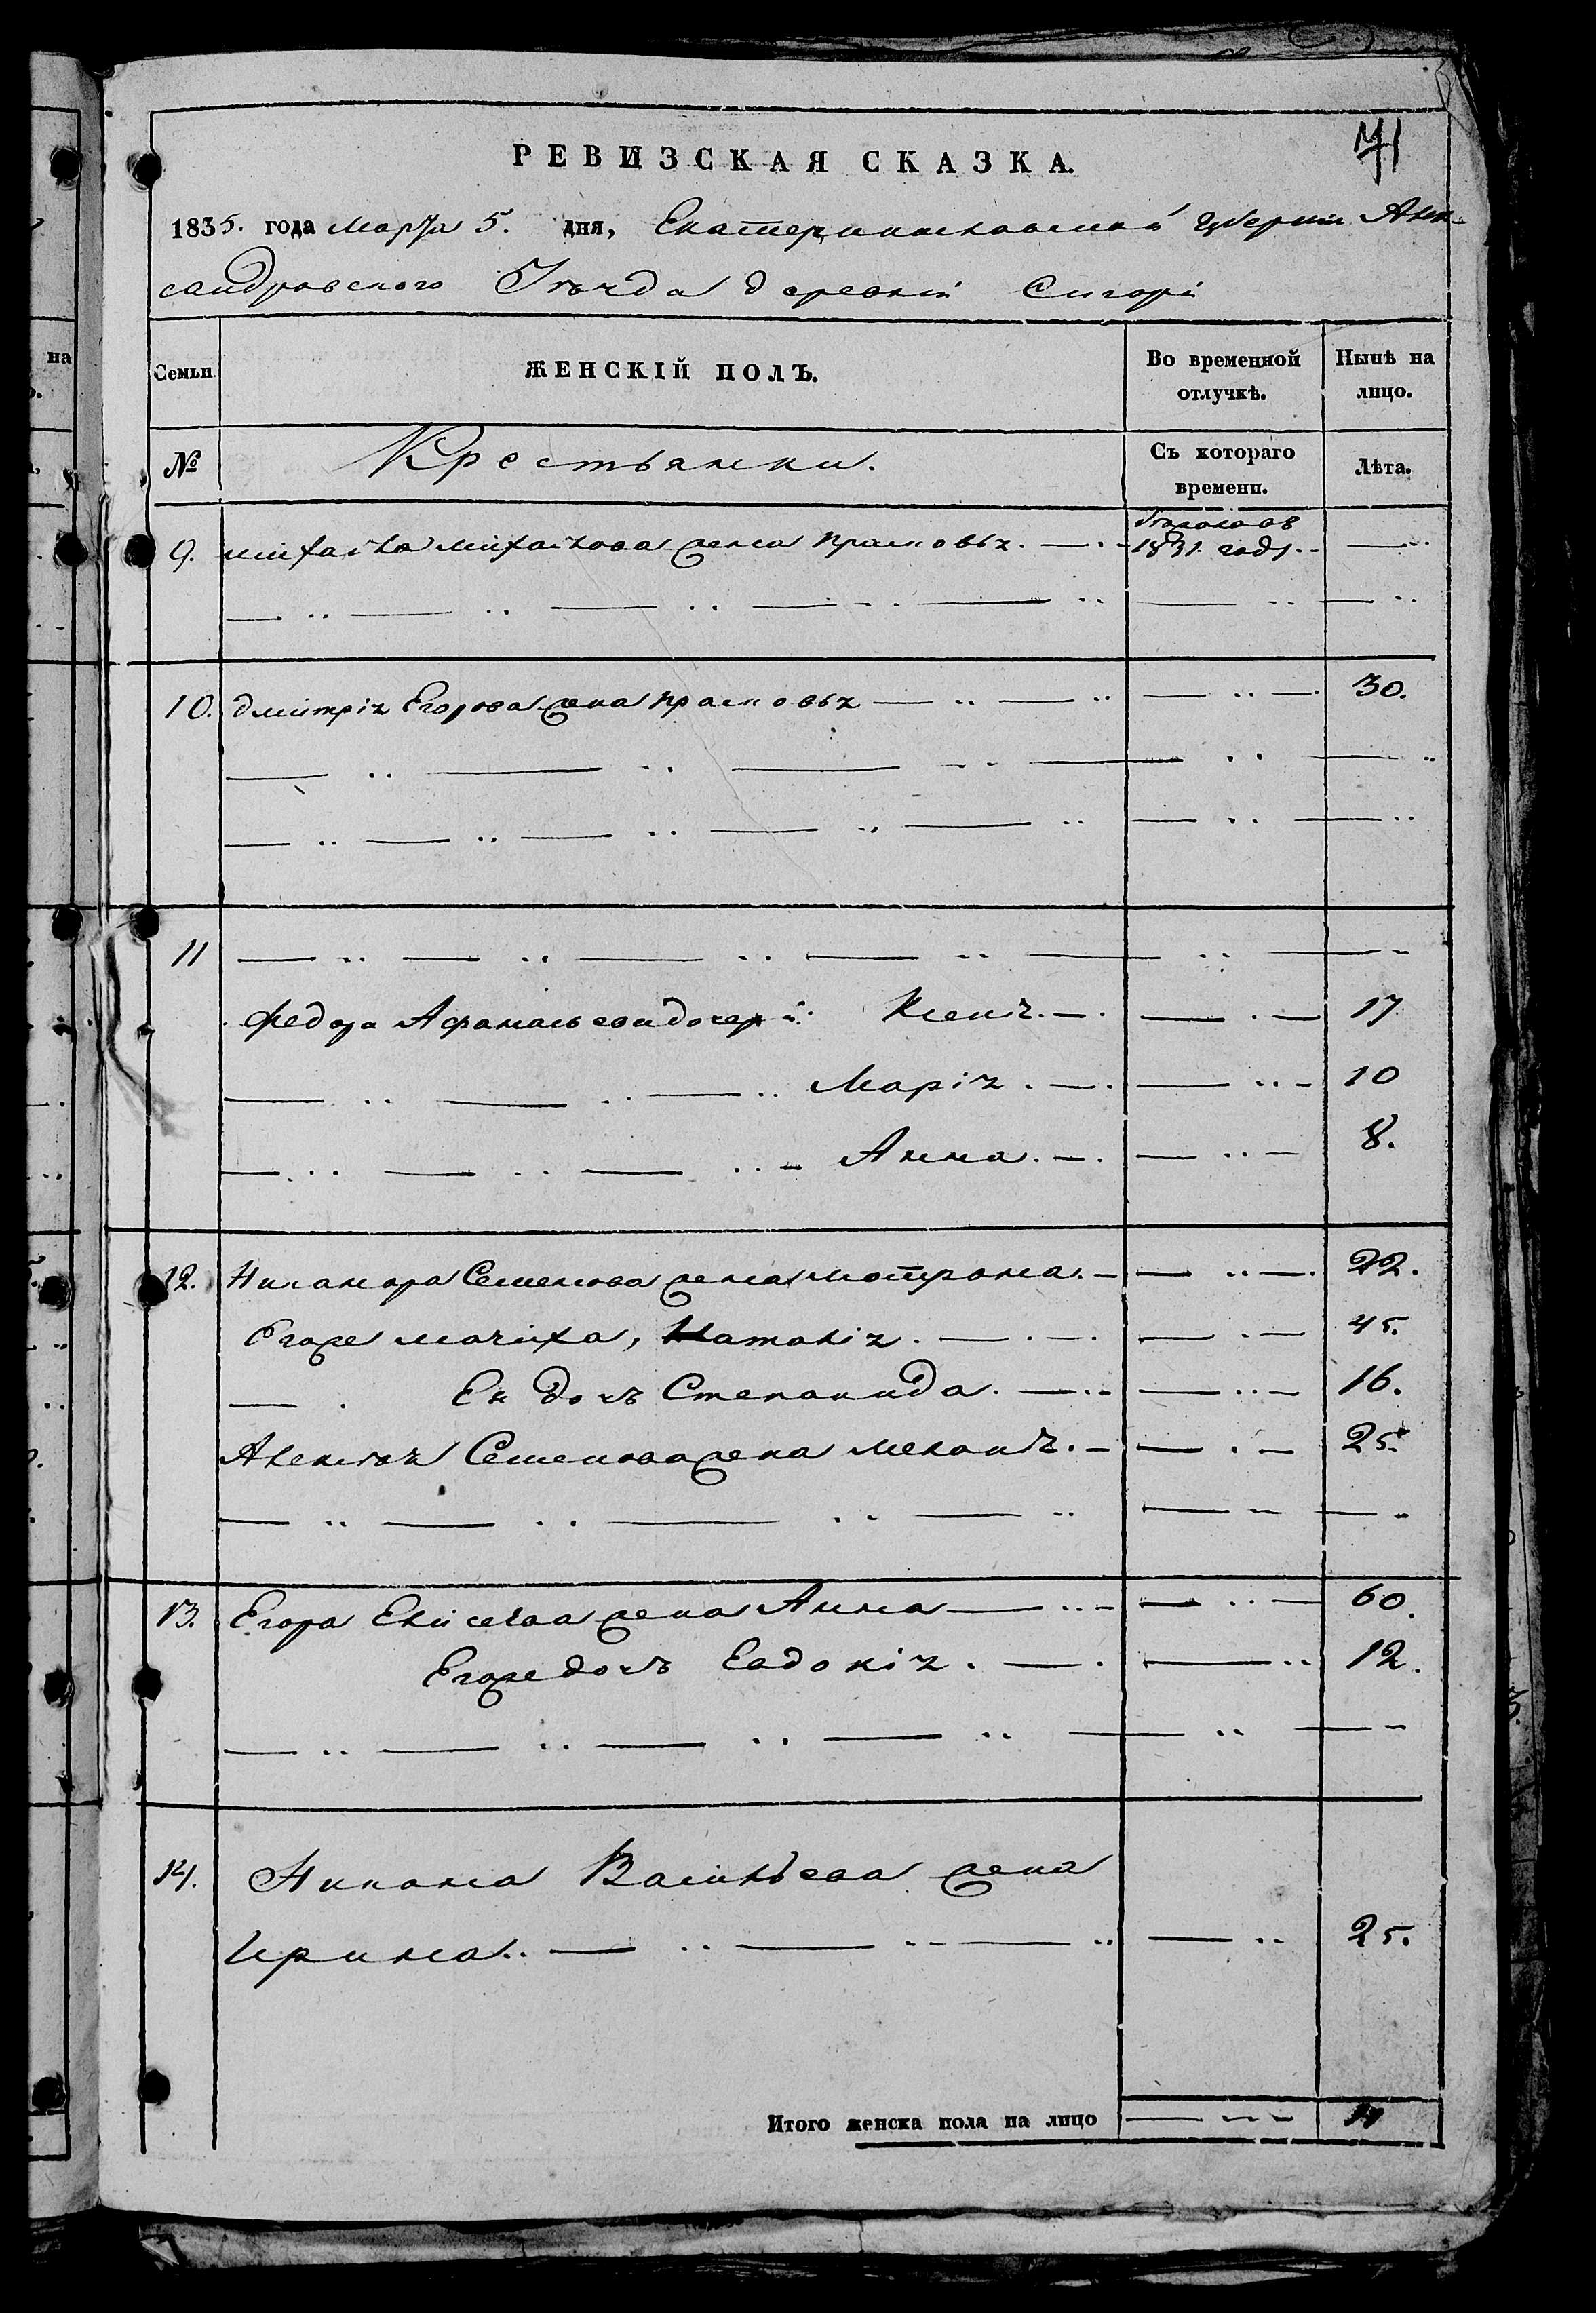 71
РЕВИЗСКАЯ СКАЗКА.
1835. года марта 5. дня, Екатеринославской губернии Алек-
сандровского Уезда деревни
Семьи. ЖЕНСКІЙ ПОЛЪ. Во временной отлучкѣ. Нынѣ на лицо.
№ Крестьянки. Съ котораго времени. Лѣта.
9. михайла михайлова жена прасковья. 1831. года.
10. дмитрія Егорова жена прасковья 30.
11
федора Афанасьева дочери: Ксенія. 17
Марія. 10
Анна. 8.
12. Никанора Семенова жена матрона. 22.
Егоже мачиха, Наталія. 45.
Ея дочь Степанида. 16.
Алексея Семенова жена меланія. 25.
13. Егора Елисеева жена Анна 60.
Егоже дочь Евдокія. 12.
14. Никона Васильева жена
Ирина. 25.
Итого женска пола на лицо 11
на